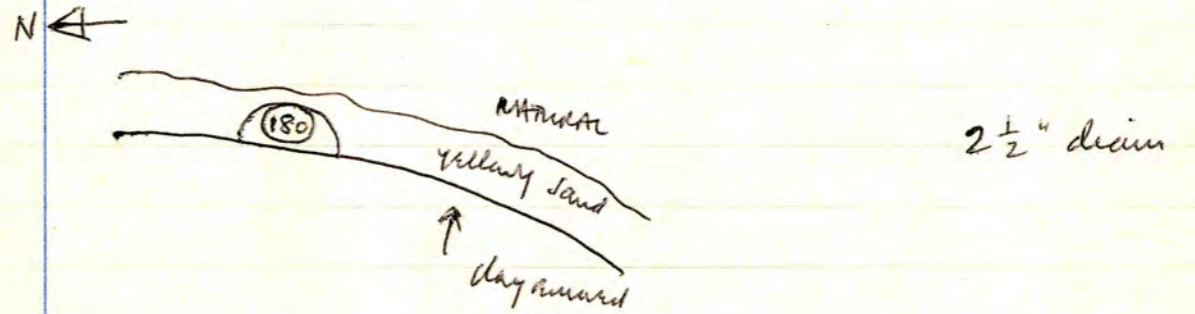 N
180
NATURAL
yellowy sand
clay removed
2 1/2 " diam